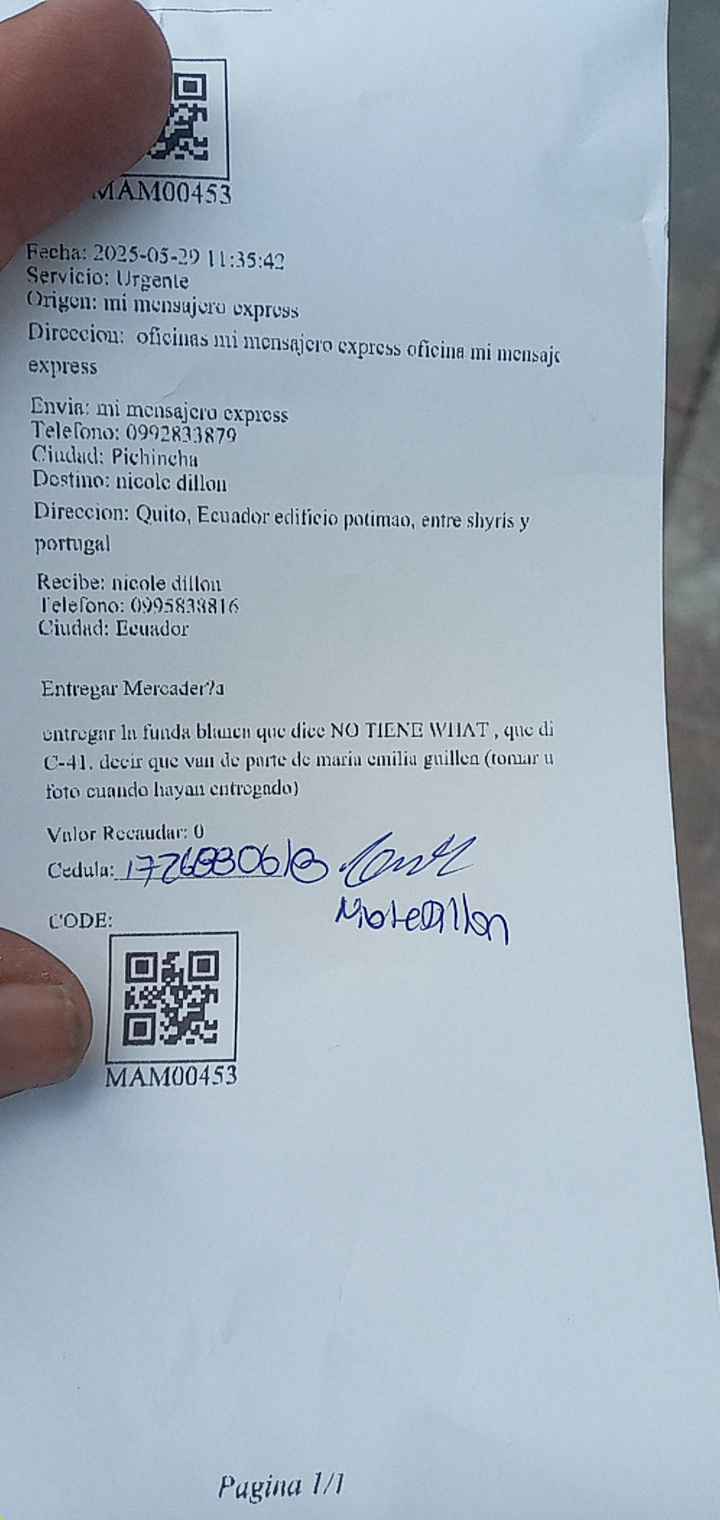 MAM00453
Fecha: 2025-05-29 11:35:42
Servicio: Urgente
Origen: mi mensajero express
Direccion: oficinas mi mensajero express oficina mi mensaje
express
Envia: mi mensajero express
Telefono: 0992833879
Ciudad: Pichincha
Destino: nicole dillon
Direccion: Quito, Ecuador edificio potimao, entre shyris y
portugal
Recibe: nicole dillon
Telefono: 0995838816
Ciudad: Ecuador
Entregar Mercader?a
entregar la funda blanca que dice NO TIENE WHAT , que di
C-41. decir que van de parte de maria emilia guillen (tomar u
foto cuando hayan entregado)
Valor Recaudar: 0
Cedula:
Dillon
CODE:
MAM00453
Pagina 1/1